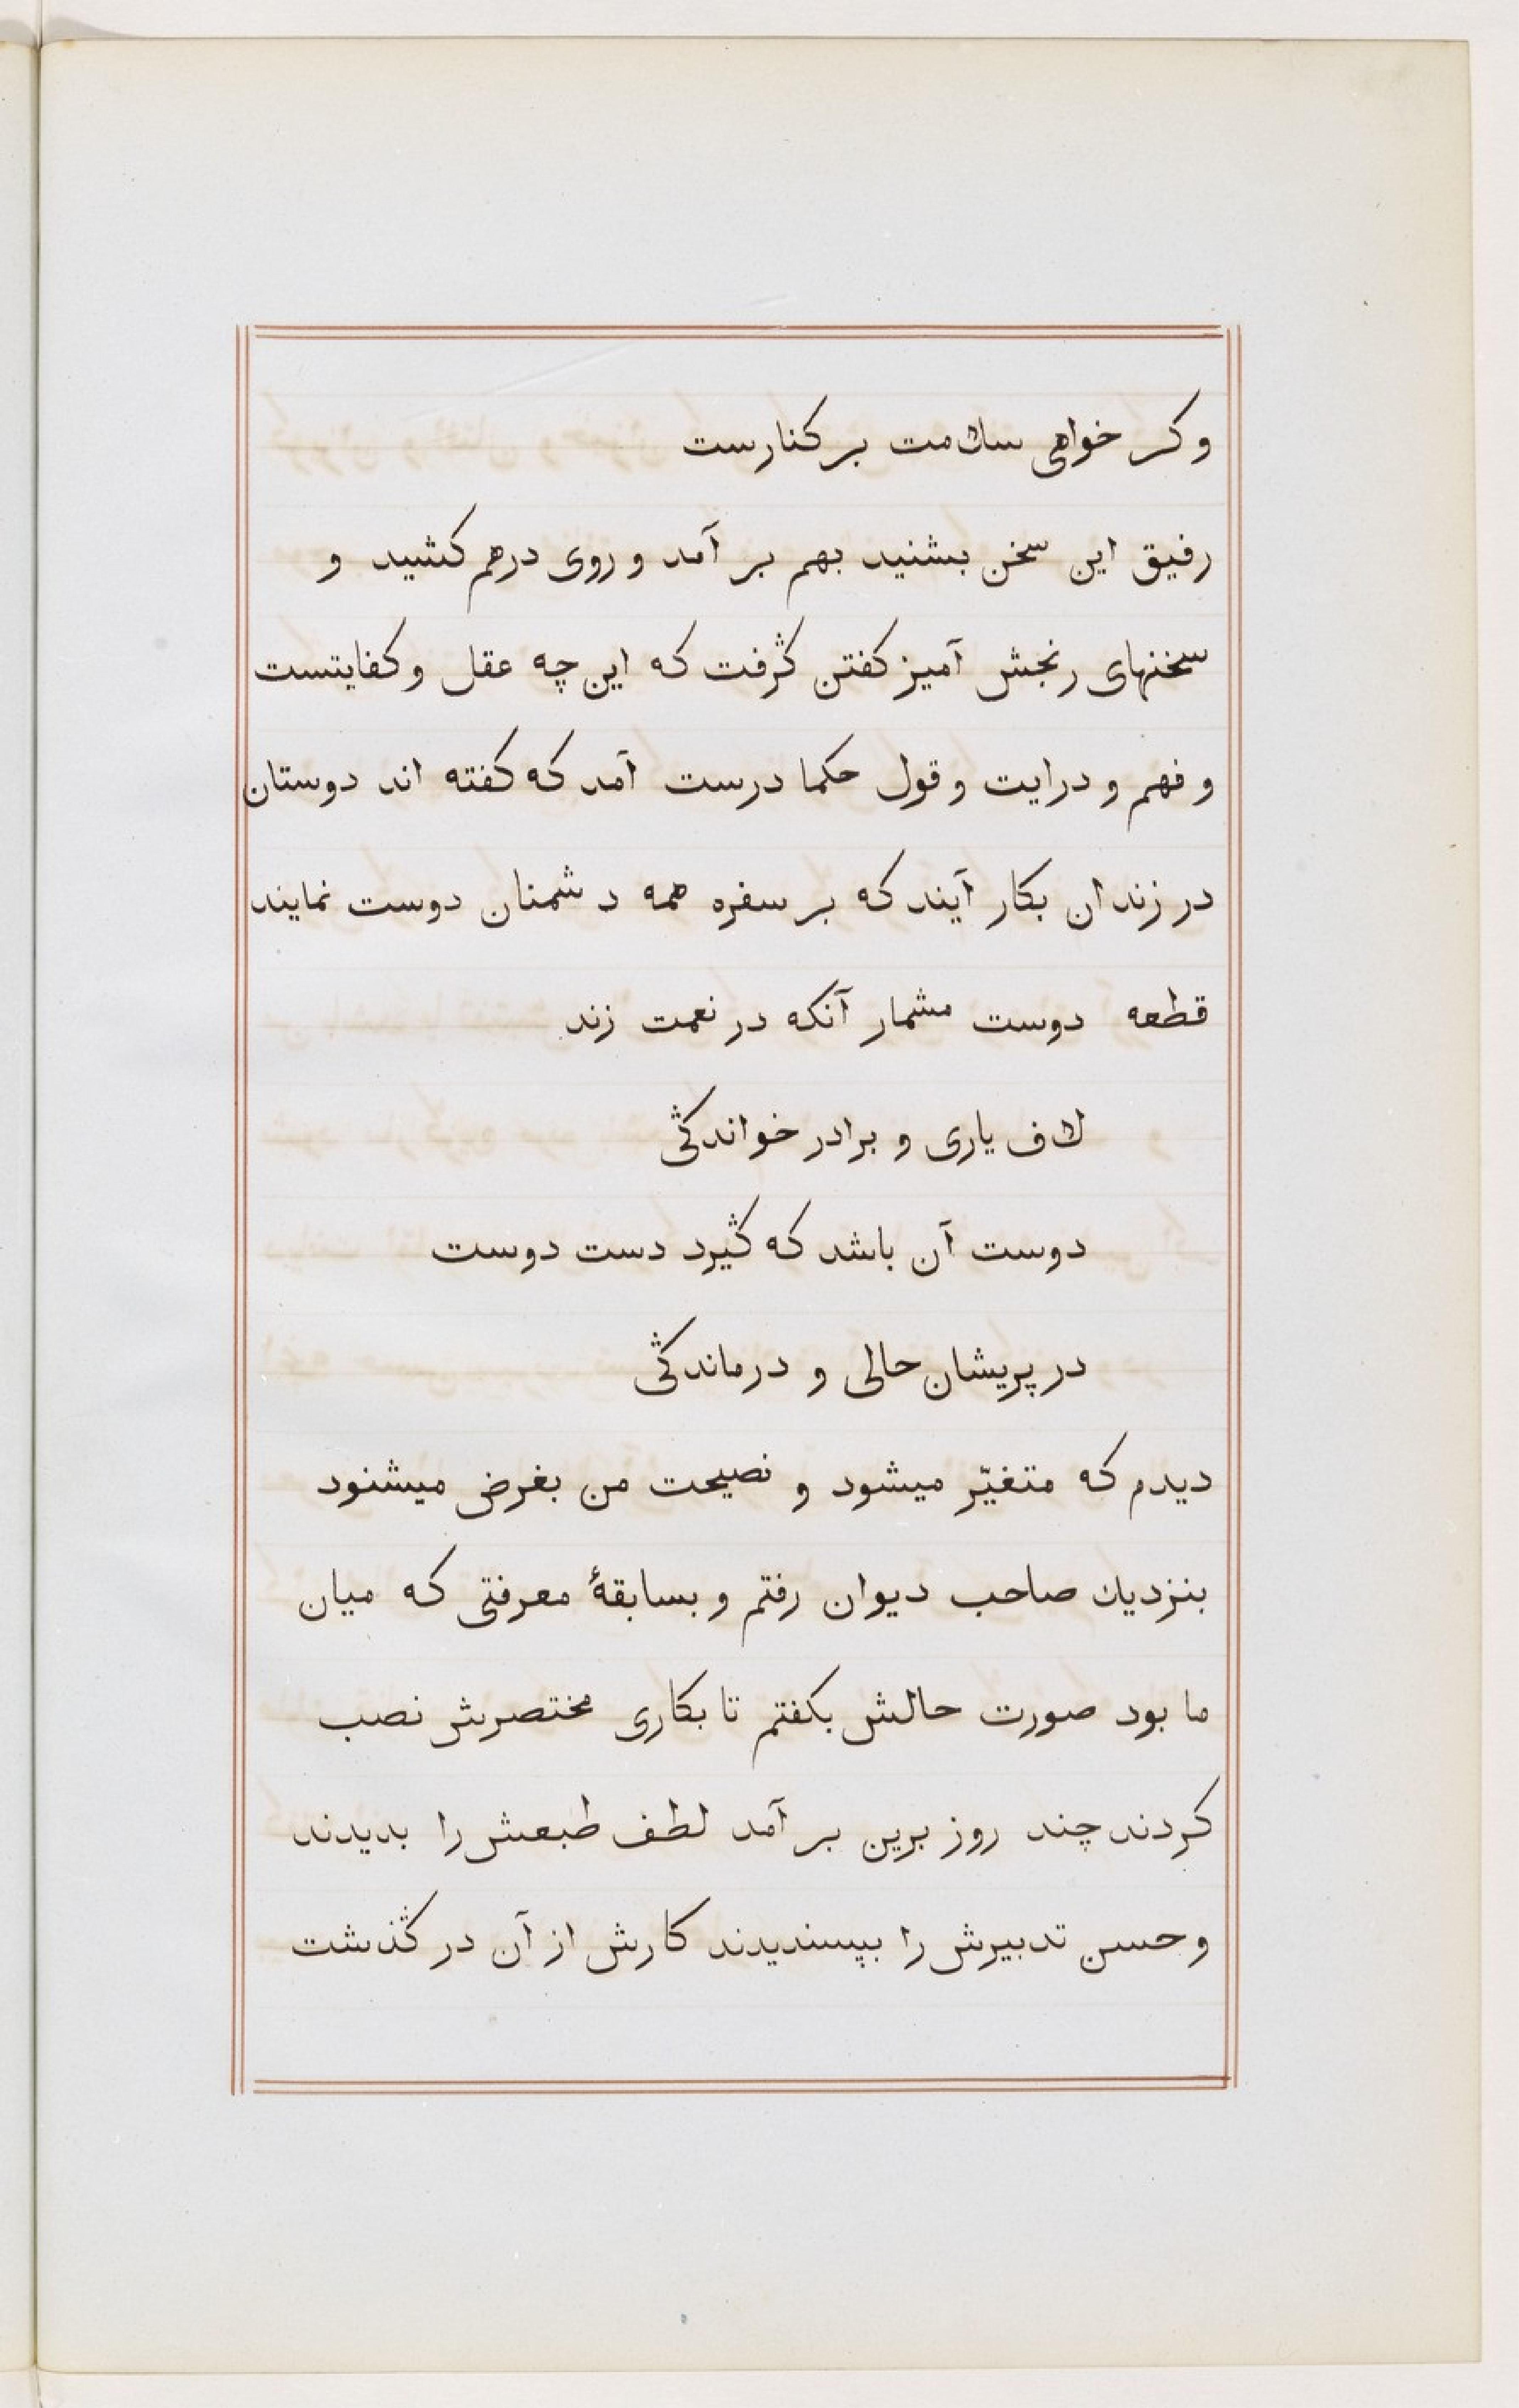 وكر خواهی سلامت بر كنارست
رفیق این سخن بشنید بهم بر آمد و روی درهم كشید و
سخنهای رنجش آمیز كفتن گرفت كه این چه عقل و كفایتست
و فهم و درایت و قول حكما درست آمد كه كفته اند دوستان
در زندان بكار آیند كه بر سفره همه دشمنان دوست نمایند
قطعه دوست مشمار آنكه در نعمت زند
لاف یاری و برادر خواندگی
دوست آن باشد كه گیرد دست دوست
در پریشان حالی و درماندگی
دیدم كه متغیّر میشود و نصیحت من بغرض میشنود
بنزدیك صاحب دیوان رفتم و بسابقهٔ معرفتی كه میان
ما بود صورت حالش بكفتم تا بكاری مختصرش نصب
كردند چند روز برین بر آمد لطف طبعش را بدیدند
و حسن تدبیرش را بپسندیدند كارش از آن در گذشت